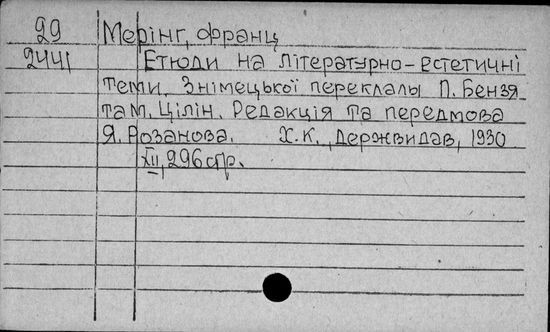 29 Мерінг, Франц
2441 Етюди на літературно-естетичні
теми, З німецької переклалы П. Бензя
та М. Цілін. Редакція та передмова
Я. Розанова. Х.К., Держвидав, 1930
XII, 296 стр.